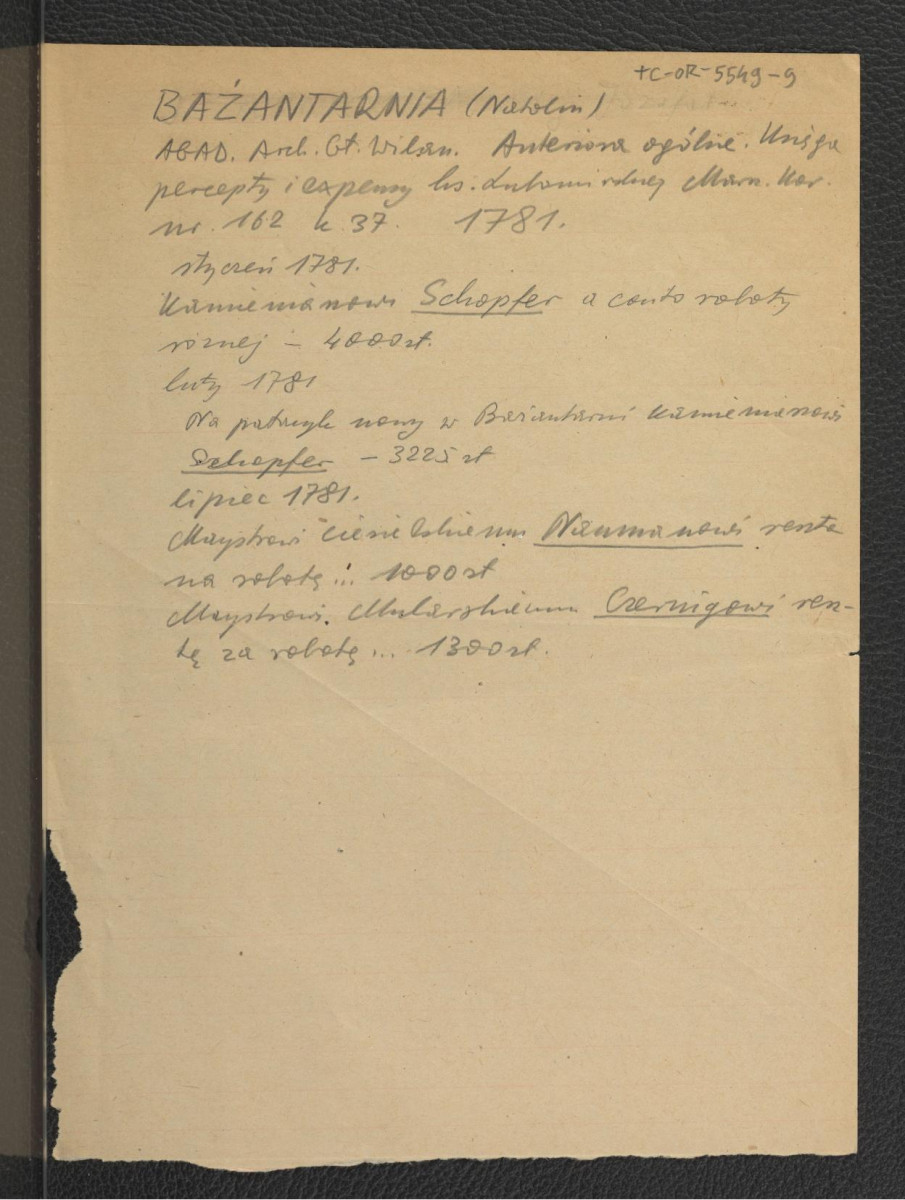 TC-OR-5549-9
BAŻANTARNIA (Natolin)
AGAD. Arch. Gł. Wilan. Anteriora ogólne. Księga
percepty i expensy ks. Lubomirskiej Marsz. Kor.
nr. 162 k. 37. 1781.
styczeń 1781.
Kamieniarzowi Schopfer a conto roboty
różnej – 4000 zł.
luty 1781
Na pawilon nowy w Bażantarni kamieniarzowi
Schopfer – 3225 zł
lipiec 1781.
Maystrowi Ciesielskiemu Naumanowi resta
na robotę ... 1000 zł
Maystrowi. Mularskiemu Czernigowi resz-
tę za robotę ... 1300 zł.